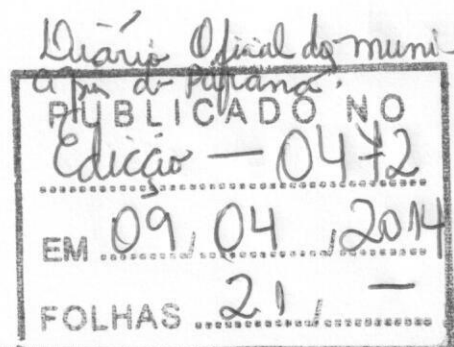 Diário Oficial dos muni-
cípios do Paraná.
PUBLICADO NO
Edicção — 0472
EM 09 / 04 / 2014
FOLHAS 21 / —